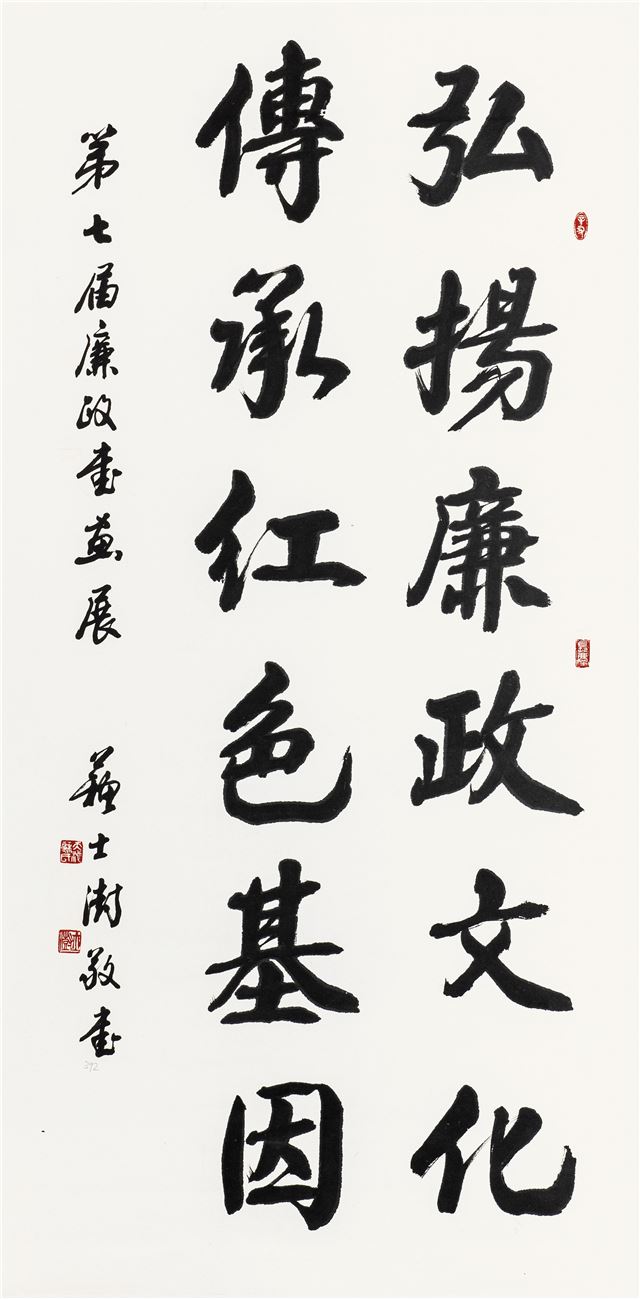 弘揚廉政文化
傳承红色基因
第七届廉政书画展
蘇士澍敬书
392